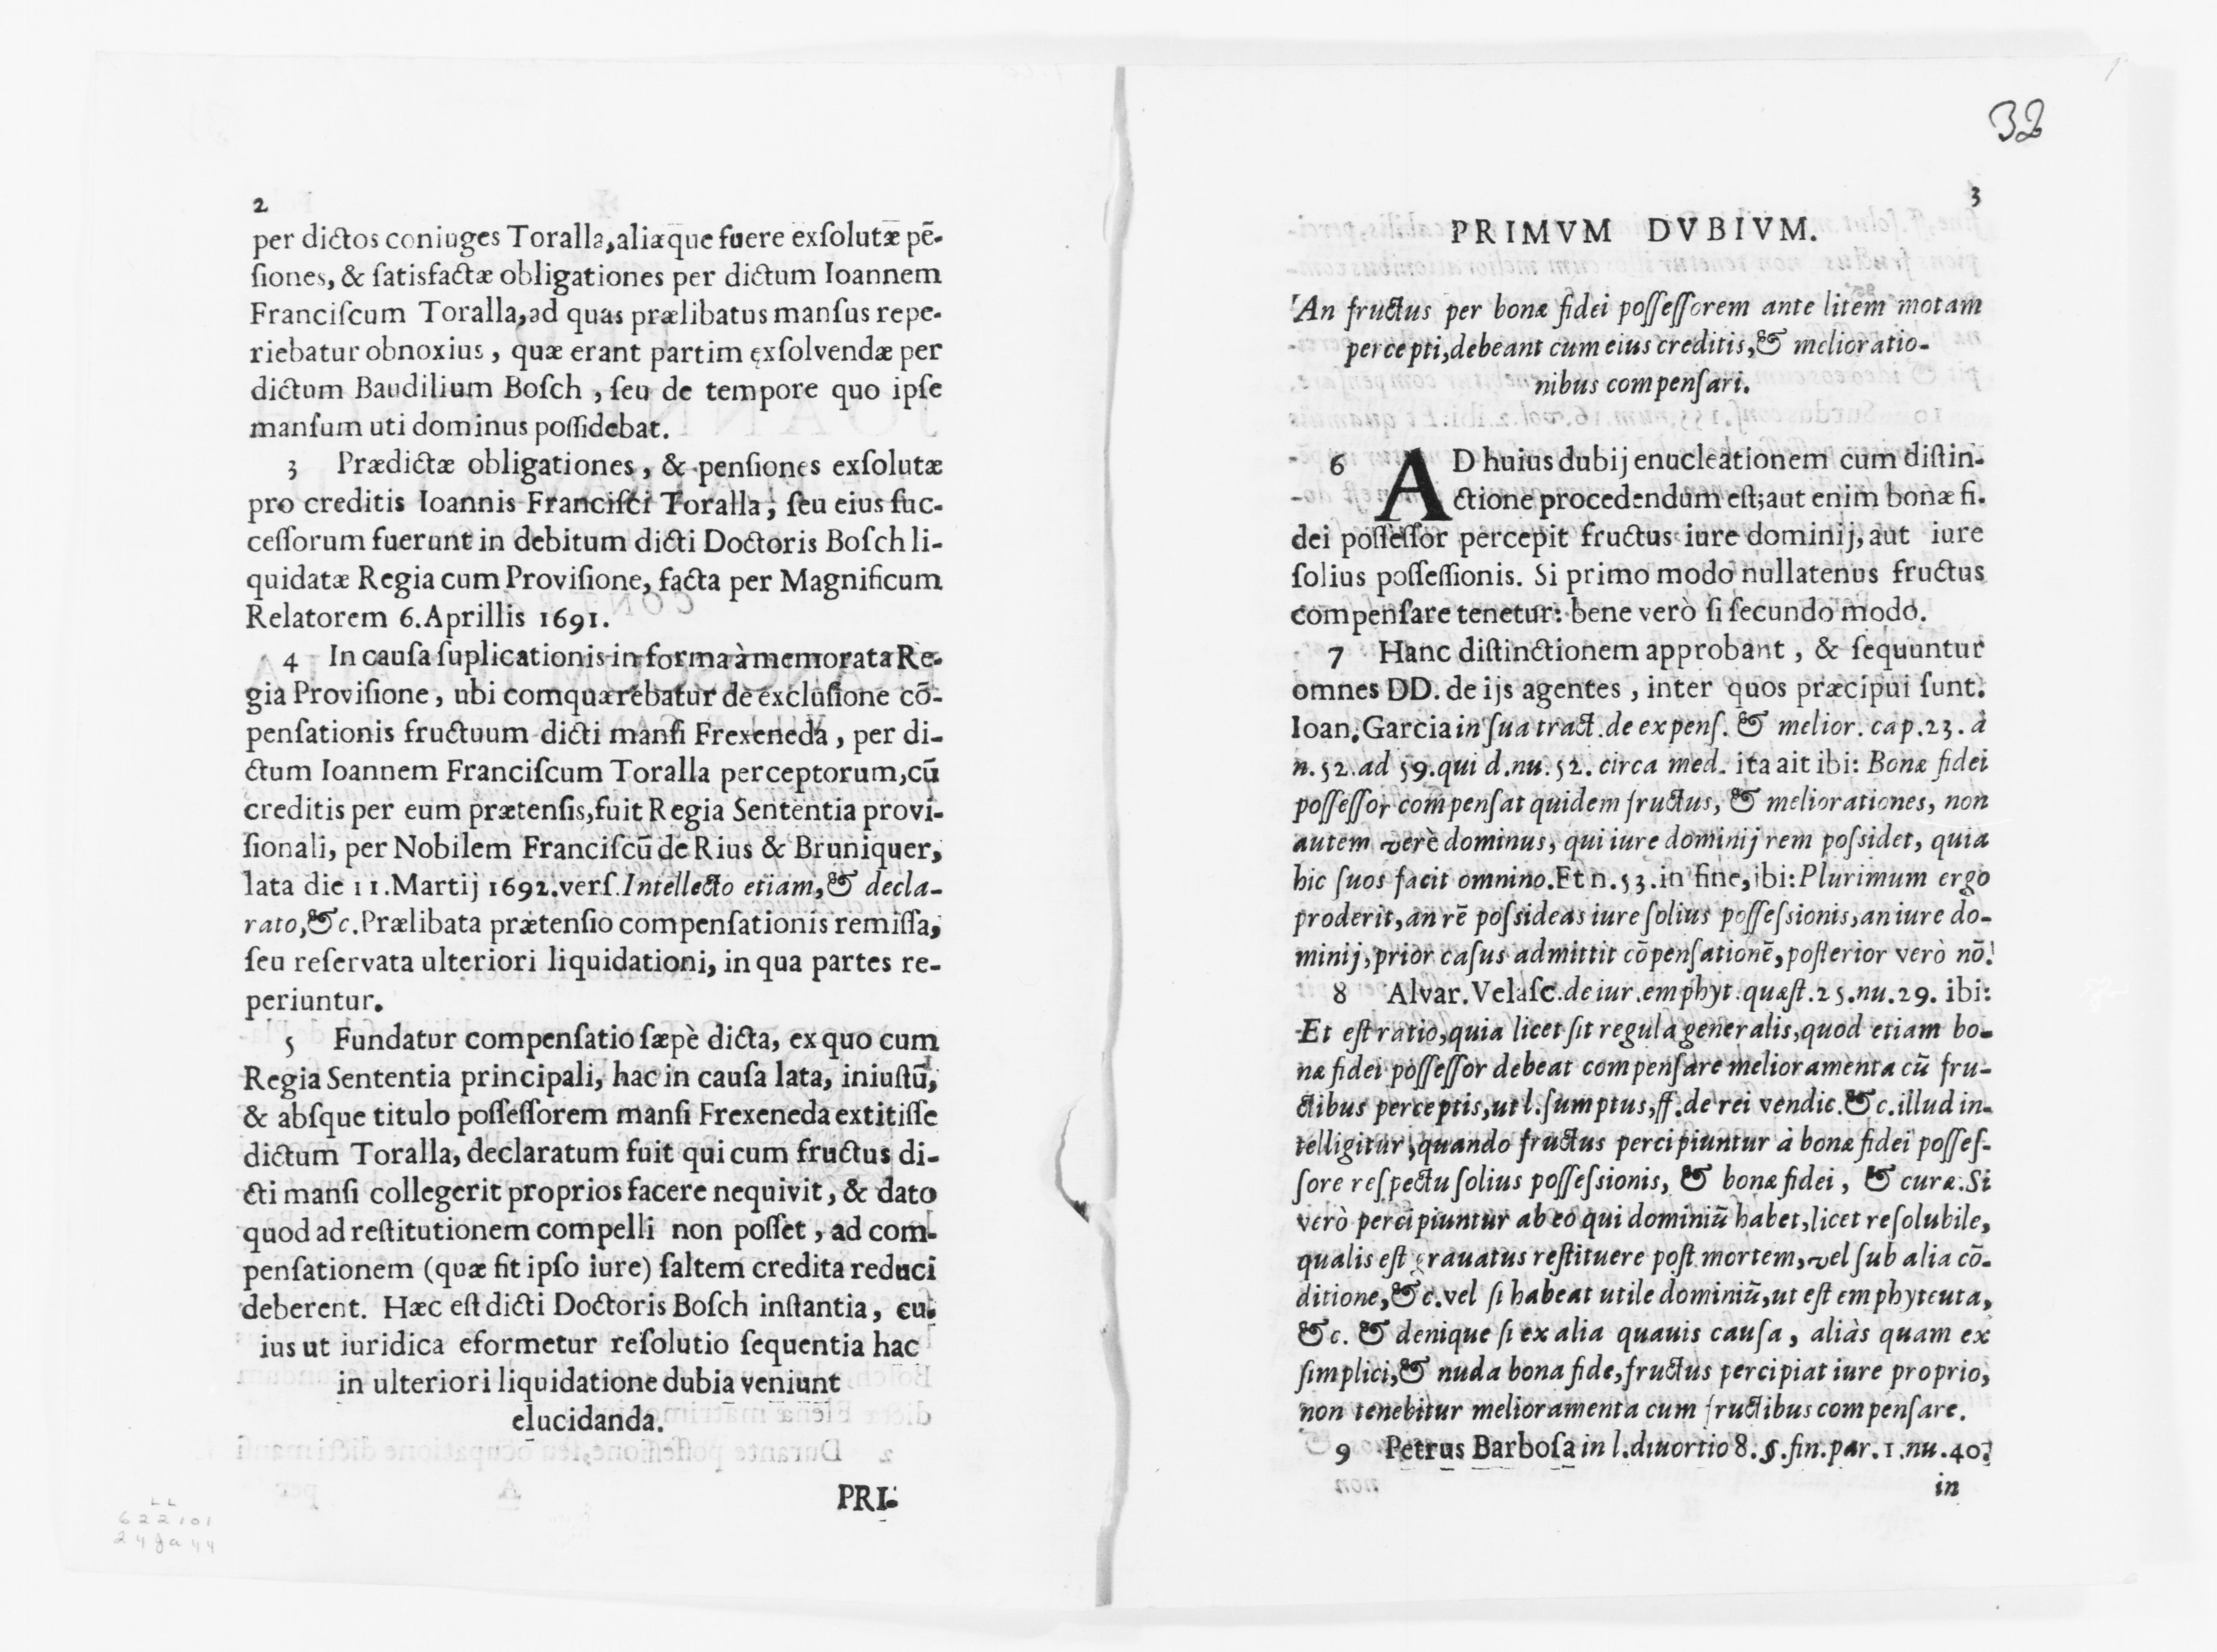 2
per dictos coniuges Toralla, aliæque fuere exſolutæ pẽ-
ſiones, & ſatisfactæ obligationes per dictum Ioannem
Franciſcum Toralla, ad quas prælibatus manſus repe-
riebatur obnoxius, quæ erant partim exſolvendæ per
dictum Baudilium Boſch, ſeu de tempore quo ipſe
manſum uti dominus poſſidebat.
3 Prædictæ obligationes, & penſiones exſolutæ
pro creditis Ioannis Franciſci Toralla; ſeu eius ſuc-
ceſſorum fuerunt in debitum dicti Doctoris Boſch li-
quidatæ Regia cum Proviſione, facta per Magnificum
Relatorem 6. Aprillis 1691.
4 In cauſa ſuplicationis in forma à memorata Re-
gia Proviſione, ubi comquærebatur de excluſione cõ-
penſationis fructuum dicti manſi Frexeneda, per di-
ctum Ioannem Franciſcum Toralla perceptorum, cũ
creditis per eum prætenſis, fuit Regia Sententia provi-
ſionali, per Nobilem Franciſcũ de Rius & Bruniquer,
lata die 11. Martij 1692. verſ. Intellecto etiam, & decla-
rato, &c. Prælibata prætenſio compenſationis remiſſa,
ſeu reſervata ulteriori liquidationi, in qua partes re-
periuntur.
5 Fundatur compenſatio ſæpè dicta, ex quo cum
Regia Sententia principali, hac in cauſa lata, iniuſtũ,
& abſque titulo poſſeſſorem manſi Frexeneda extitiſſe
dictum Toralla, declaratum fuit qui cum fructus di-
cti manſi collegerit proprios facere nequivit, & dato
quod ad reſtitutionem compelli non poſſet, ad com-
penſationem (quæ fit ipſo iure) ſaltem credita reduci
deberent. Hæc eſt dicti Doctoris Boſch inſtantia, cu-
ius ut iuridica eformetur reſolutio ſequentia hac
in ulteriori liquidatione dubia veniunt
elucidanda.
PRI-
32
3
PRIMVM DVBIVM.
An fructus per bonæ fidei poſſeſſorem ante litem motam
percepti, debeant cum eius creditis, & melioratio-
nibus compenſari.
6 AD huius dubij enucleationem cum diſtin-
ctione procedendum eſt; aut enim bonæ fi-
dei poſſeſſor percepit fructus iure dominij, aut iure
ſolius poſſeſſionis. Si primo modo nullatenus fructus
compenſare tenetur: bene verò ſi ſecundo modo.
7 Hanc diſtinctionem approbant, & ſequuntur
omnes DD. de ijs agentes, inter quos præcipui ſunt.
Ioan. Garcia in ſua tract. de expenſ. & melior. cap. 23. à
n. 52. ad 59. qui d. nu. 52. circa med. ita ait ibi: Bonæ fidei
poſſeſſor compenſat quidem fructus, & meliorationes, non
autem verè dominus, qui iure dominij rem poſsidet, quia
hic ſuos facit omnino. Et n. 53. in fine, ibi: Plurimum ergo
proderit, an rẽ poſsideas iure ſolius poſſeſsionis, an iure do-
minij, prior caſus admittit cõpenſationẽ, poſterior verò nõ.
8 Alvar. Velaſc. de iur. emphyt. quæſt. 25. nu. 29. ibi:
Et eſt ratio, quia licet ſit regula generalis, quod etiam bo-
næ fidei poſſeſſor debeat compenſare melioramenta cũ fru-
ctibus perceptis, ut l. ſumptus, ff. de rei vendic. &c. illud in-
telligitur, quando fructus percipiuntur à bonæ fidei poſſeſ-
ſore reſpectu ſolius poſſeſsionis, & bonæ fidei, & curæ. Si
verò percipiuntur ab eo qui dominiũ habet, licet reſolubile,
qualis eſt grauatus reſtituere poſt mortem, vel ſub alia cõ-
ditione, &c. vel ſi habeat utile dominiũ, ut eſt emphyteuta,
&c. & denique ſi ex alia quauis cauſa, aliàs quam ex
ſimplici, & nuda bona fide, fructus percipiat iure proprio,
non tenebitur melioramenta cum fructibus compenſare.
9 Petrus Barboſa in l. diuortio 8. §. fin. par. 1. nu. 40.
in